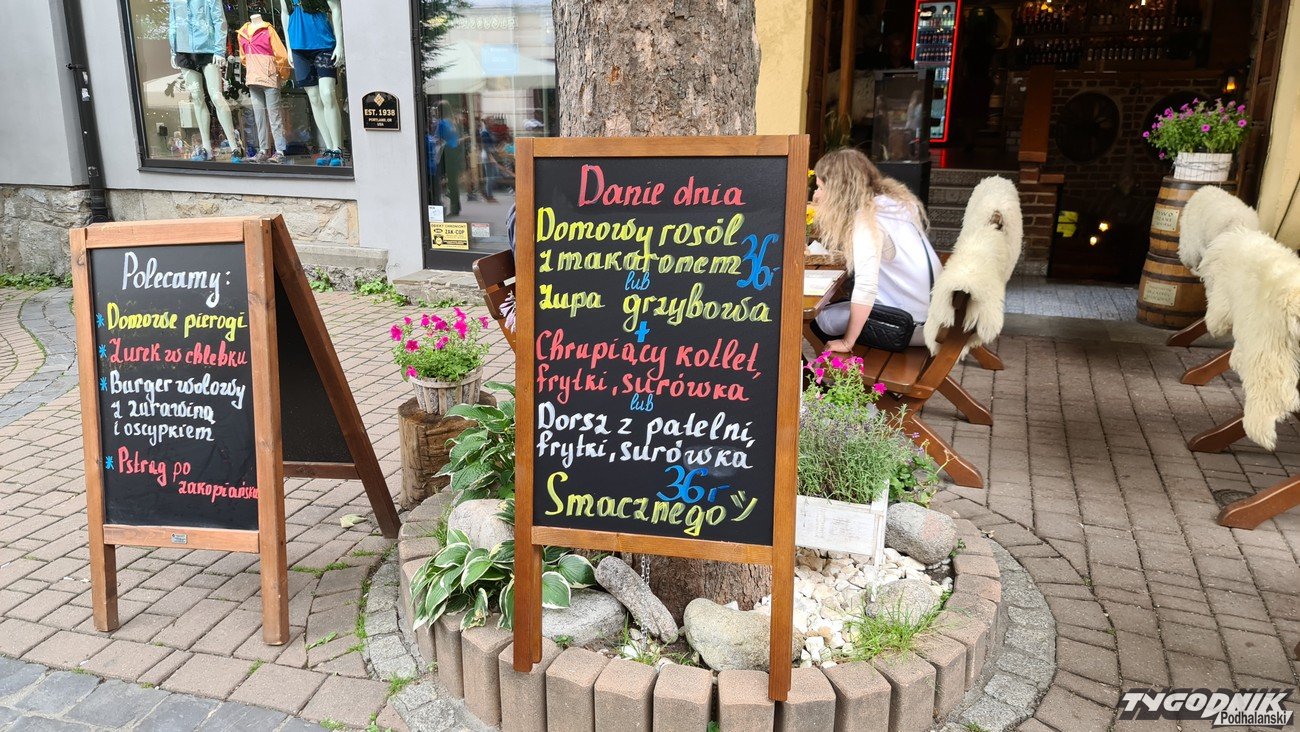 Polecamy:
* Domowe pierogi
* Żurek w chlebku
* Burger wołowy
z żurawiną
i oscypkiem
* Pstrąg po
zakopiańsku
Danie dnia
Domowy rosół
z makaronem 36zł
lub
Zupa grzybowa
+
Chrupiący kotlet,
frytki, surówka
lub
Dorsz z patelni,
frytki, surówka
36zł
Smacznego
EST. 1938
PORTLAND, OR
USA
TYGODNIK
Podhalański